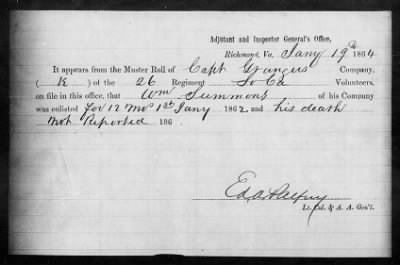 Adjutant and Inspector General's Office,
Richmond, Va. Jany 19th 1864
It appears from the Muster Roll of Capt Grangers Company,
( K ) of the 26 Regiment So Ca Volunteers,
on file in this office, that Wm Summons of his Company
was enlisted for 12 mos 1st Jany 1862 and his death
not Reported 186 .
Ed. A. Palfrey
Lt. Col. & A. A. Gen'l.